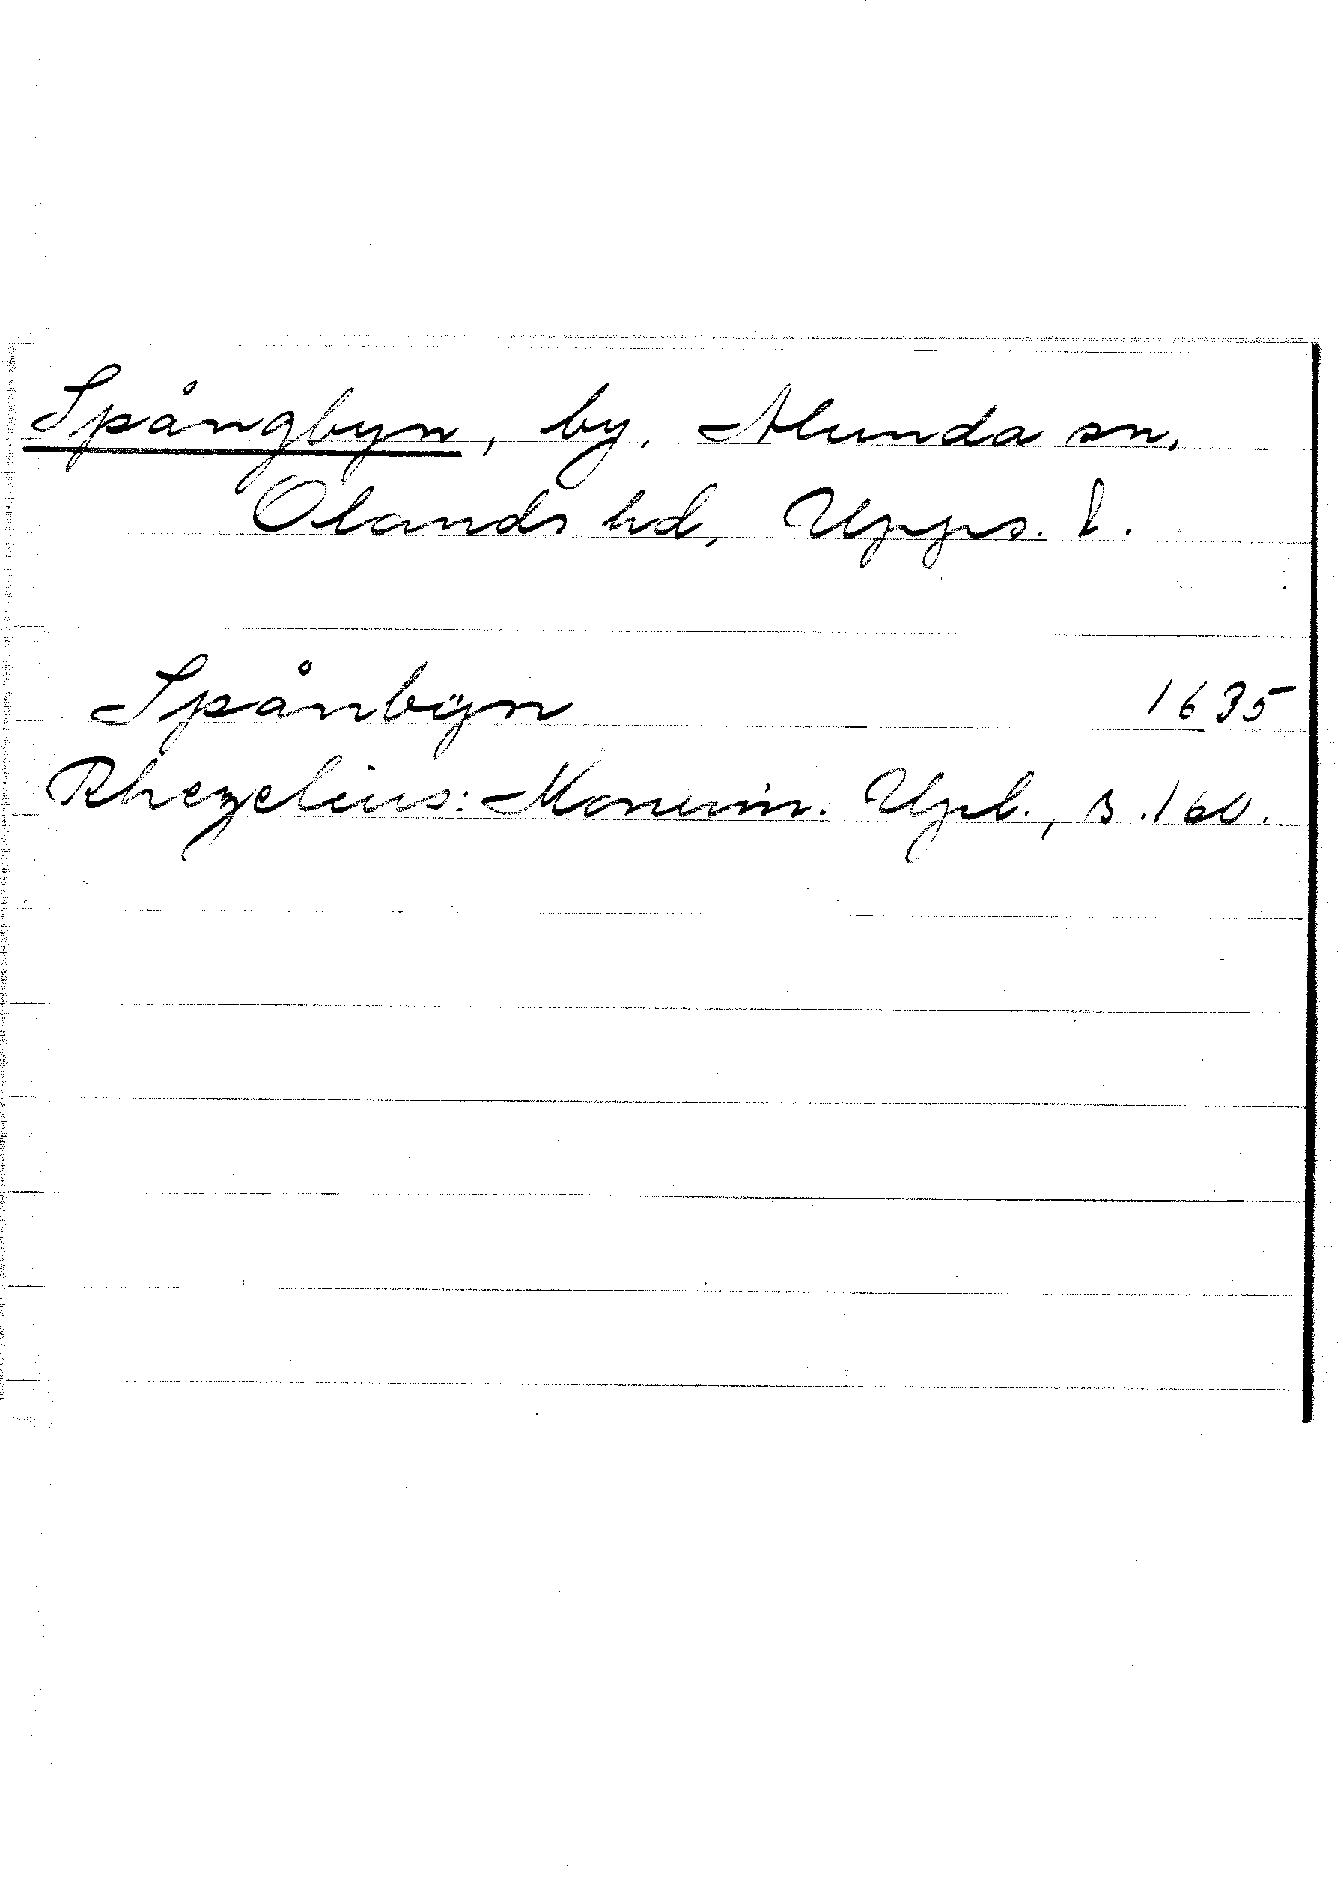 Spångbyn, by, Alunda sn,
Olands hd, Upps. l.
Spånbÿn 1635
Rhezelius: Monum. Upl., s. 160.